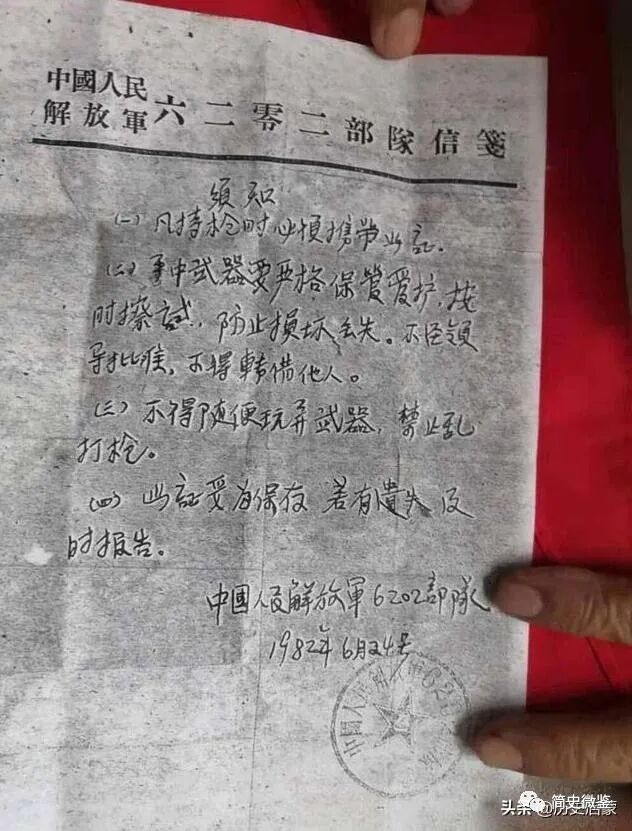 中國人民
解放軍六二零二部隊信箋
須知
(一)凡持枪时必須携带此証。
(二)手中武器要严格保管爱护,按
时擦試,防止損坏丢失。不经領
导批准,不得轉借他人。
(三)不得随便玩弄武器,禁止乱
打枪。
(四)此証妥為保存 若有遺失及
时报告。
中國人民解放軍6202部隊
1982年6月24号
中國人民解放軍620
头条@历史启蒙
简史微鉴